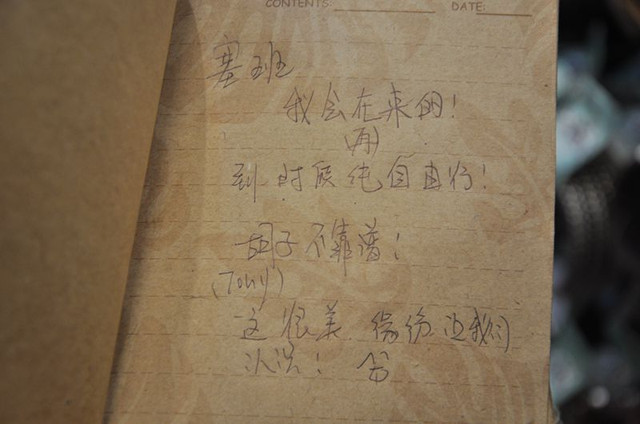 CONTENTS: DATE:
塞班
我会在来的!
(再)
到时候纯自由行!
胡子不靠谱!
(Tony)
这很美 缘份让我们
认识!